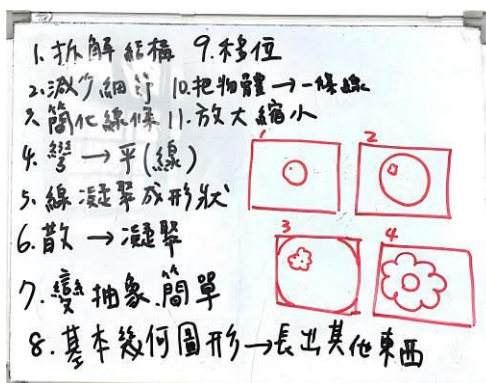 1. 拆解結構 9. 移位
2. 減少細節 10. 把物體→一條線
3. 簡化線條 11. 放大縮小
4. 彎→平(線)
5. 線凝聚成形狀
6. 散→凝聚
7. 變抽象.簡單
8. 基本幾何圖形→長出其他東西
1
2
3
4